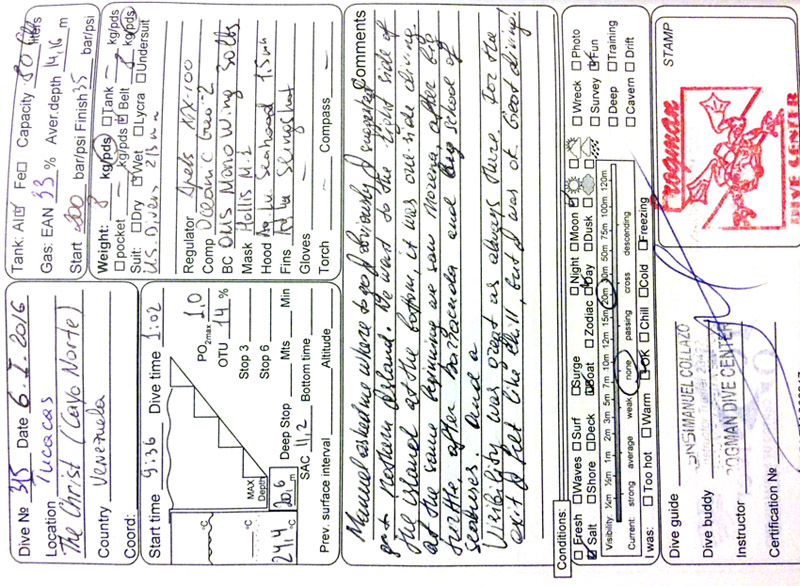 Dive № 315 Date 6. I. 2016
Location Tucacas
The Christ (Cayo Norte)
Country Venezuela
Coord:
Tank: Al Fe Capacity 80
liters
Gas: EAN 33 % Aver.depth 14,16 m
Start 200 bar/psi Finish 35 bar/psi
Start time 9:36 Dive time 1:02
PO2max 1,0
OTU 14 %
Stop 3
Stop 6
Deep Stop Mts Min
MAX
Depth
°C °C
24,4 20,6 m
SAC 11,2 Bottom time
Prev. surface interval Altitude
Weight: 8 kg/pds Tank – kg/pds
pocket – kg/pds Belt 8 kg/pds
Suit: Dry Wet Lycra Undersuit
U.S. Divers 2/3 mm
Regulator Apeks NX-100
Comp Oceanic Geo-2
BC OMS Mono Wing 30lbs
Mask Hollis M.1
Hood Seahood 1.5mm
Fins Slingshot
Gloves
Torch Compass
Comments
Manuel asked me where to go & obviously I suggested
Northern Island. We went to the right side of
the island at the bottom, it was one-side diving.
at the same beginning we saw Morena, after big
turtle, after barracuda and big school of
and a
Visibility was great as always there for the
exit I felt like chill, but I was ok. Great diving!
Conditions:
Fresh Waves Surf Surge Night Moon
Salt Shore Deck Boat Zodiac Day Dusk
Wreck Photo
Survey Fun
Deep Training
Cavern Drift
Visibility ¼m ½m 1m 2m 3m 5m 7m 10m 12m 15m 20m 30m 50m 75m 100m 120m
Current: strong average weak none passing cross descending
I was: Too hot Warm OK Chill Cold Freezing
Dive guide
Dive buddy
Instructor
Certification №
MANUEL COLLAZO
FROGMAN DIVE CENTER
STAMP
Frogman
DIVE CENTER